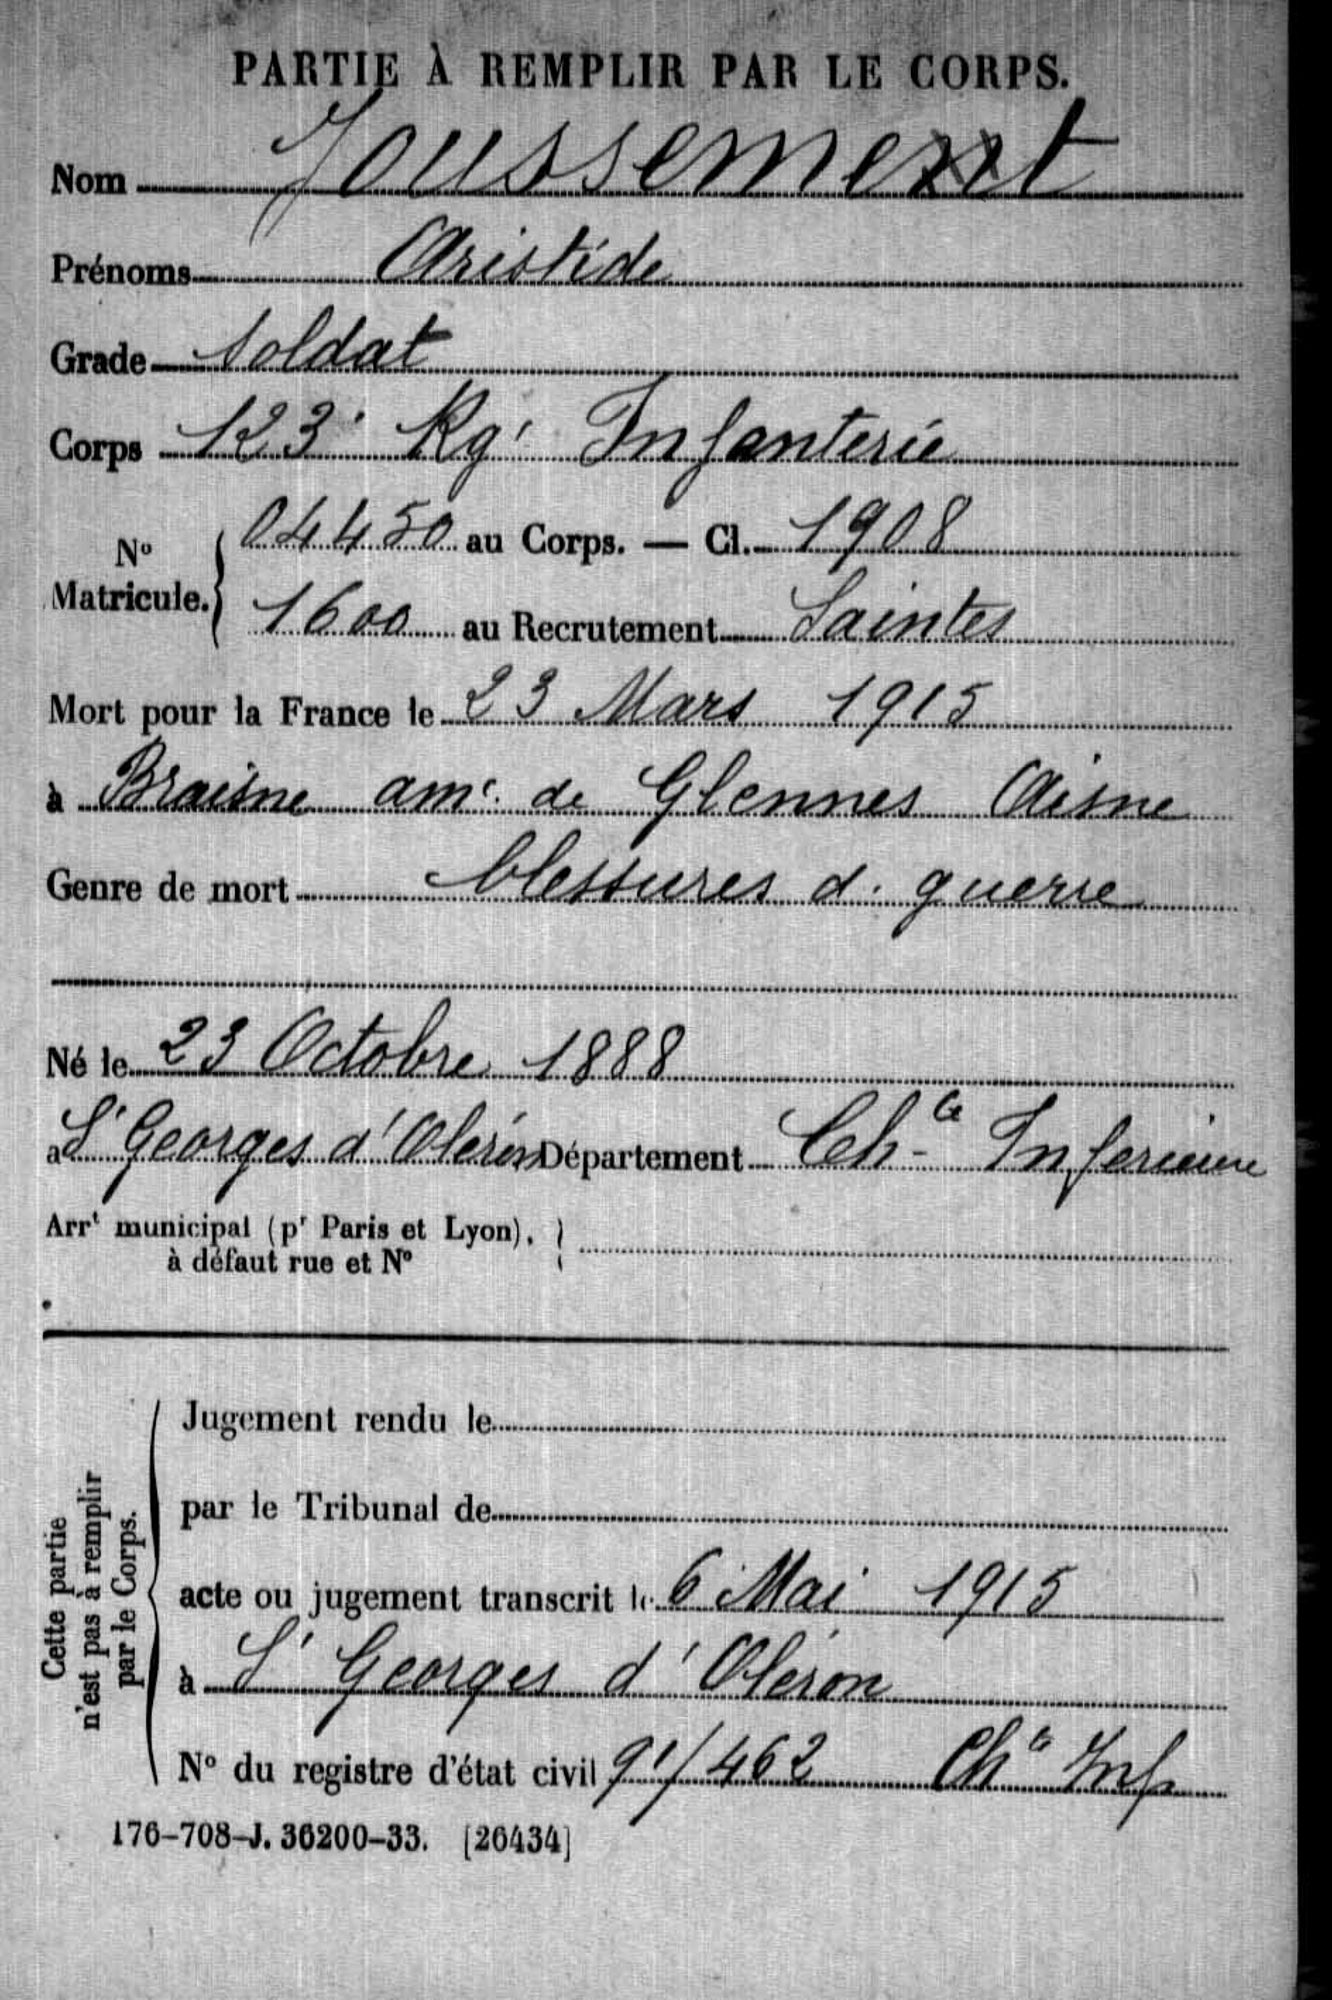 PARTIE À REMPLIR PAR LE CORPS.
Nom Joussemet
Prénoms Aristide
Grade Soldat
Corps 123e Rgt Infanterie
No Matricule. { 04450 au Corps. — Cl. 1908
1600 au Recrutement Saintes
Mort pour la France le 23 Mars 1915
à Braisne amce de Glennes Aisne
Genre de mort blessures d. guerre
Né le 23 Octobre 1888
a St Georges d'Oléron Département Ch-ce Inferieure
Arrt municipal (pr Paris et Lyon), }
à défaut rue et No
Cette partie
n'est pas à remplir
par le Corps.
Jugement rendu le
par le Tribunal de
acte ou jugement transcrit le 6 Mai 1915
à St Georges d'Oléron
No du registre d'état civil 91/462 Chce Infre
176-708-J. 36200-33. [26434]